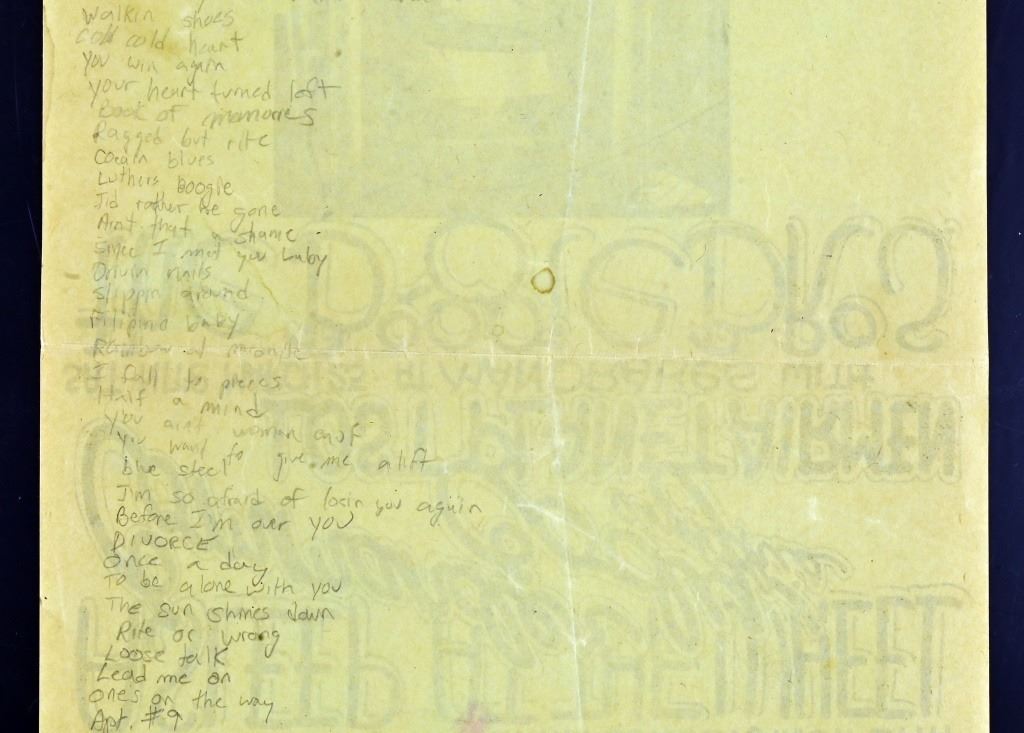 Walkin shoes
Cold cold heart
you win again
your heart turned left
Book of memories
Ragged but rite
Cocain blues
Luthers Boogie
I'd rather be gone
Aint that a shame
Since I met you baby
Drivin nails
slippin around
Filipino baby
Rainbow at midnite
I fall to pieces
Half a mind
you aint woman enof
you want to give me a lift
blue steel
I'm so afraid of losin you again
Before I'm over you
DIVORCE
Once a day
To be alone with you
The sun shines down
Rite or wrong
Loose talk
Lead me on
ones on the way
Apt. #9
LOST PLANET AIRMEN